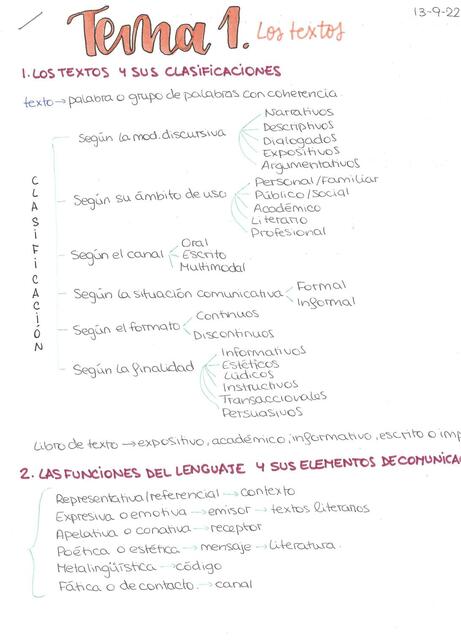 Tema 1. Los textos
13-9-22
1. LOS TEXTOS Y SUS CLASIFICACIONES
texto → palabra o grupo de palabras con coherencia.
CLASIFICACIÓN
Según la mod. discursiva
Narrativos
Descriptivos
Dialogados
Expositivos
Argumentativos
Según su ámbito de uso
Personal/Familiar
Público/Social
Académico
Literario
Profesional
Según el canal
Oral
Escrito
Multimodal
Según la situación comunicativa
Formal
Informal
Según el formato
Continuos
Discontinuos
Según la finalidad
Informativos
Estéticos
Lúdicos
Instructivos
Transaccionales
Persuasivos
Libro de texto → expositivo, académico, informativo, escrito o imp
2. LAS FUNCIONES DEL LENGUAJE Y SUS ELEMENTOS DE COMUNICA
Representativa/referencial → contexto
Expresiva o emotiva → emisor → textos literarios
Apelativa o conativa → receptor
Poética o estética → mensaje → Literatura.
Metalingüística → código
Fática o de contacto. → canal